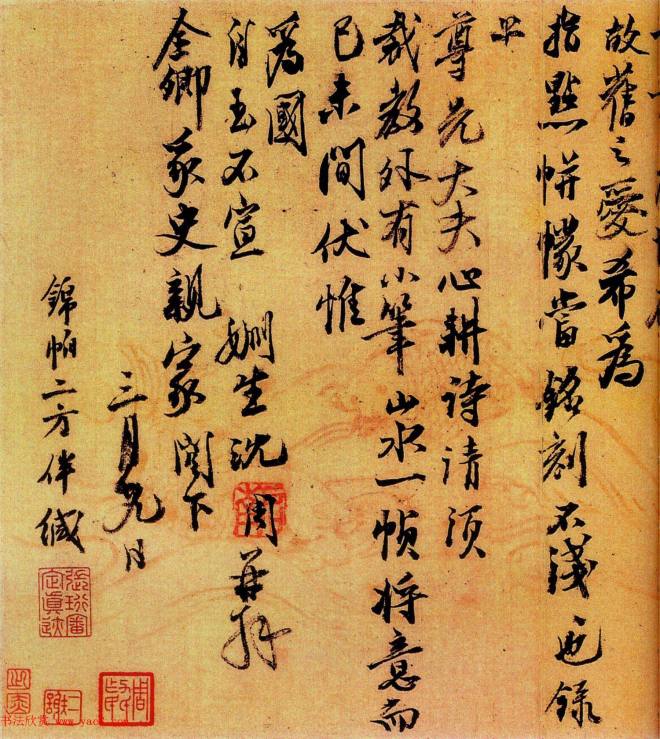 故舊之愛希爲
指點帡幪當銘刻不淺也錄
上
尊先大夫心耕詩請須
裁教外有小筆山水一幀將意而
已未間伏惟
爲國
自玉不宣 姻生沈周再拜
全卿冢史親家閣下
三月九日
錦帕二方伴緘
張珩審定真迹
书法欣赏 www.yac